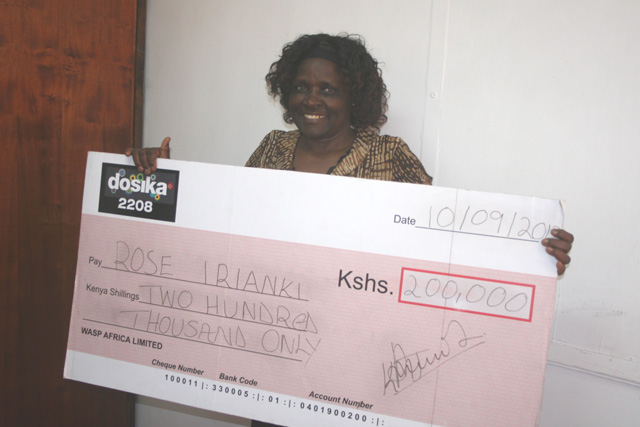 dosika
2208
Date 10/09/20
Pay ROSE IRIANKI
Kshs. 200,000
Kenya Shillings TWO HUNDRED
THOUSAND ONLY
WASP AFRICA LIMITED
Cheque Number Bank Code Account Number
100011|: 330005 :|: 01 :|: 0401900200 :|: